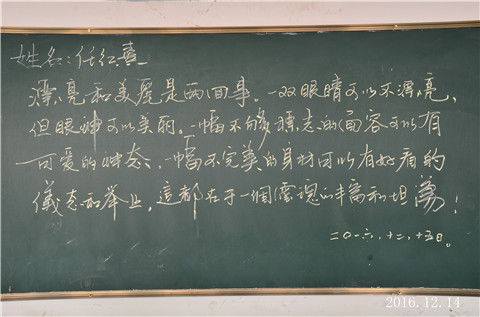 姓名:任红喜
漂亮和美麗是两回事。一双眼睛可以不漂亮,
但眼神可以美丽。一幅不够標志的面容可以有
可爱的神态,一幅不完美的身材可以有好看的
儀态和举止。這都在于一個灵魂的丰富和坦蕩!
二〇一六.十二.十五日。
2016.12.14